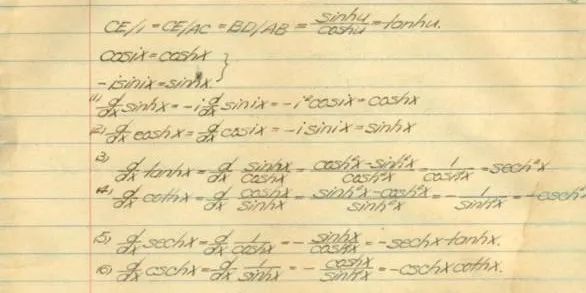 CE/1 = CE/AC = BD/AB = sinhu/coshu = tanhu.
cosix = coshx
-isinix = sinhx }
(1) d/dx sinhx = -i d/dx sinix = -i²cosix = coshx
(2) d/dx coshx = d/dx cosix = -isinix = sinhx
(3) d/dx tanhx = d/dx sinhx/coshx = cosh²x-sinh²x/cosh²x = 1/cosh²x = sech²x
(4) d/dx cothx = d/dx coshx/sinhx = sinh²x-cosh²x/sinh²x = -1/sinh²x = -csch²x
(5) d/dx sechx = d/dx 1/coshx = - sinhx/cosh²x = -sechx·tanhx.
(6) d/dx cschx = d/dx 1/sinhx = - coshx/sinh²x = -cschxcothx.